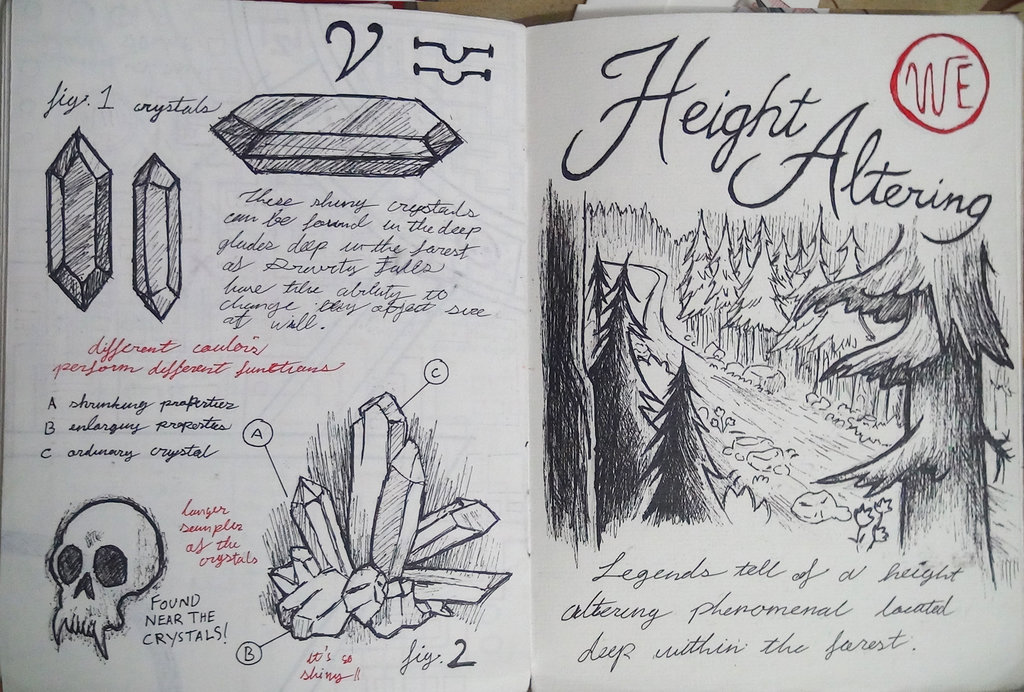 fig. 1 crystals
These shiny crystals
can be found in the deep
glades deep in the forest
of Gravity Falls
have the ability to
change any object size
at will.
different coulors
perform different functions
A shrinking properties
B enlarging properties
C ordinary crystal
A
B
C
larger
samples
of the
crystals
FOUND
NEAR THE
CRYSTALS!
it's so
shiny!!
fig. 2
Height
Altering
WE
Legends tell of a height
altering phenomenal located
deep within the forest.